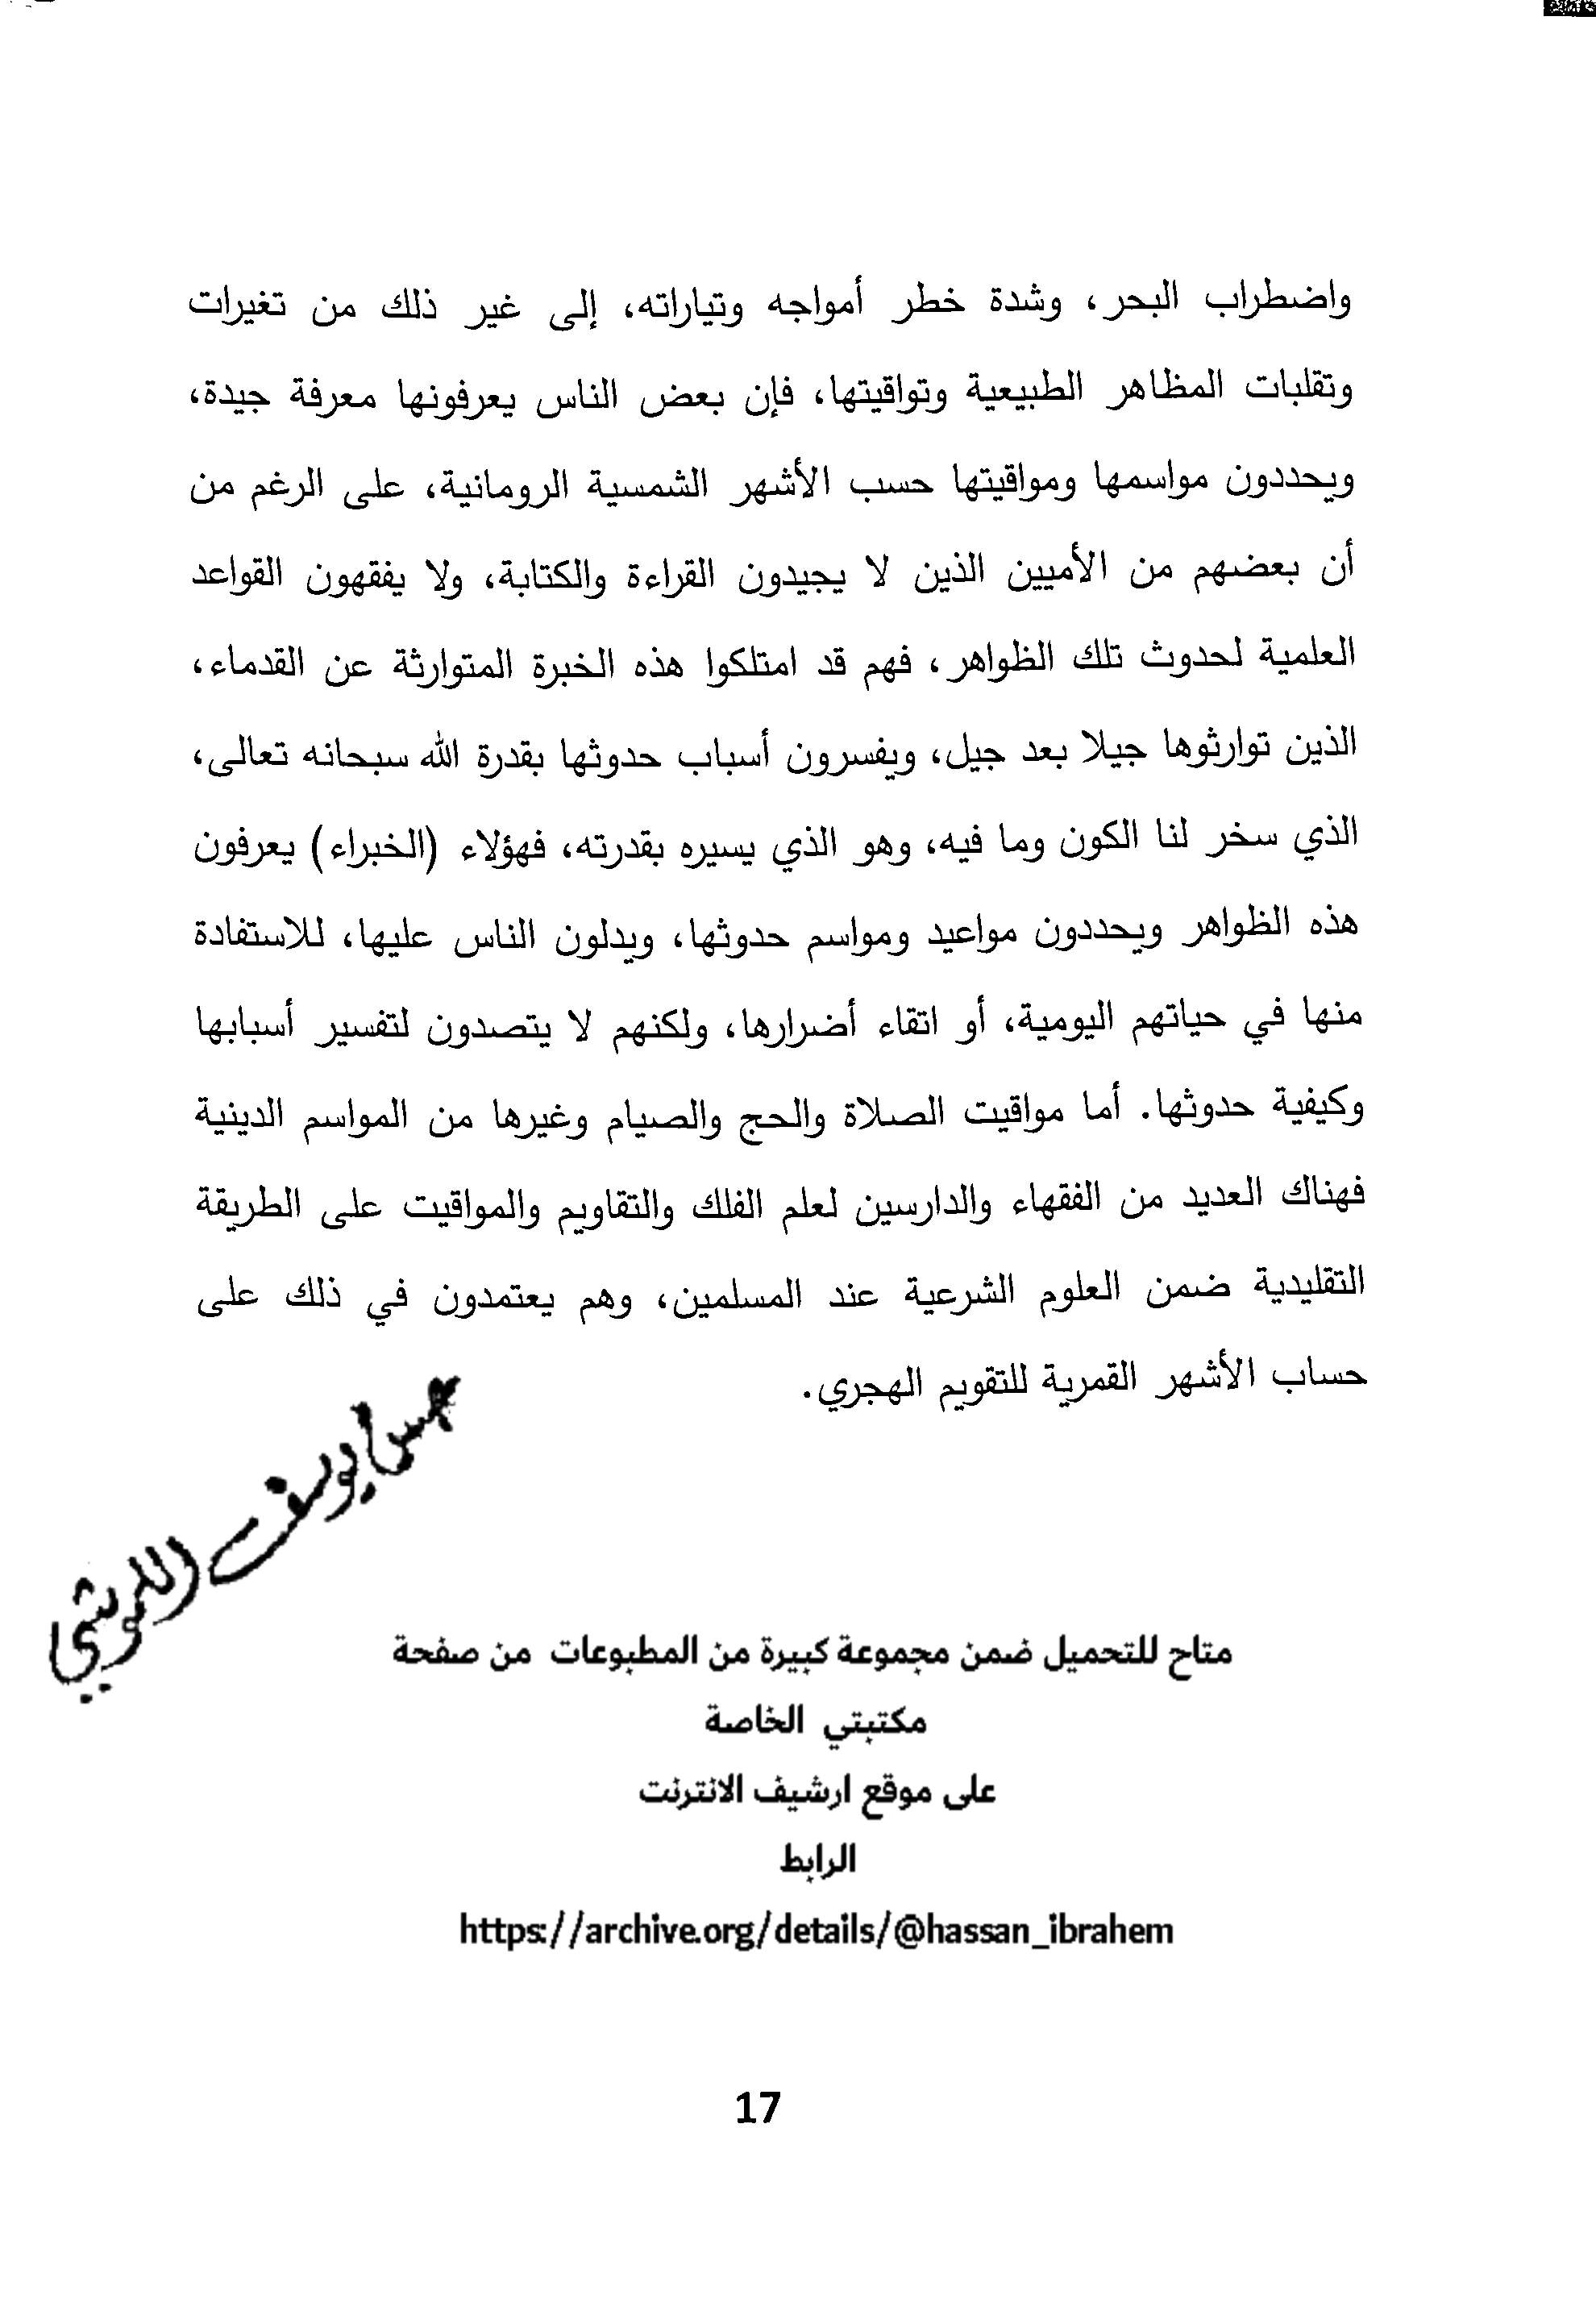 واضطراب البحر، وشدة خطر أمواجه وتياراته، إلى غير ذلك من تغيرات
وتقلبات المظاهر الطبيعية وتواقيتها، فإن بعض الناس يعرفونها معرفة جيدة،
ويحددون مواسمها ومواقيتها حسب الأشهر الشمسية الرومانية، على الرغم من
أن بعضهم من الأميين الذين لا يجيدون القراءة والكتابة، ولا يفقهون القواعد
العلمية لحدوث تلك الظواهر، فهم قد امتلكوا هذه الخبرة المتوارثة عن القدماء،
الذين توارثوها جيلا بعد جيل، ويفسرون أسباب حدوثها بقدرة الله سبحانه تعالى،
الذي سخر لنا الكون وما فيه، وهو الذي يسيره بقدرته، فهؤلاء (الخبراء) يعرفون
هذه الظواهر ويحددون مواعيد ومواسم حدوثها، ويدلون الناس عليها، للاستفادة
منها في حياتهم اليومية، أو اتقاء أضرارها، ولكنهم لا يتصدون لتفسير أسبابها
وكيفية حدوثها. أما مواقيت الصلاة والحج والصيام وغيرها من المواسم الدينية
فهناك العديد من الفقهاء والدارسين لعلم الفلك والتقاويم والمواقيت على الطريقة
التقليدية ضمن العلوم الشرعية عند المسلمين، وهم يعتمدون في ذلك على
حساب الأشهر القمرية للتقويم الهجري.
يوسف
متاح للتحميل ضمن مجموعة كبيرة من المطبوعات من صفحة
مكتبتي الخاصة
على موقع ارشيف الانترنت
الرابط
https://archive.org/details/@hassan_ibrahem
17